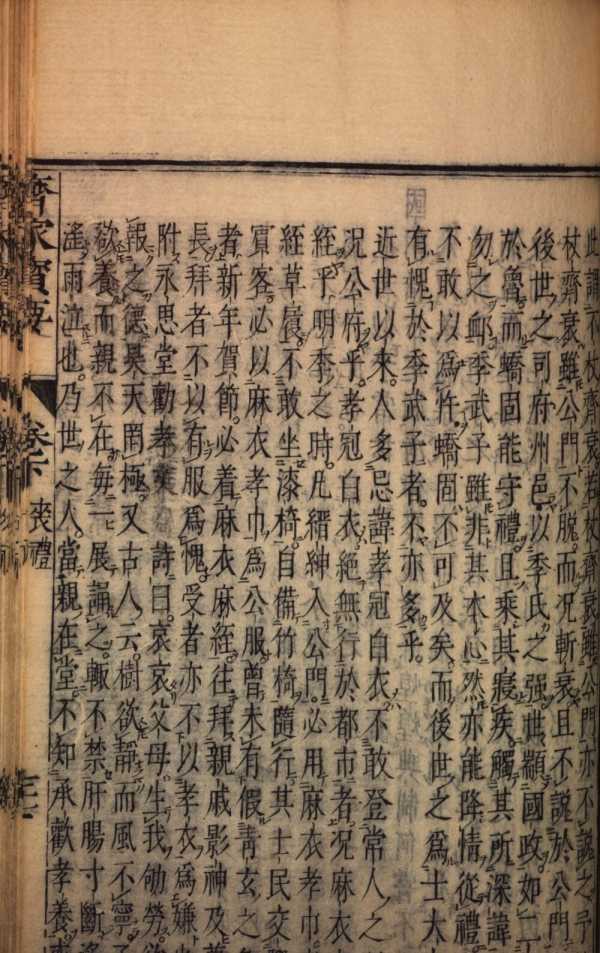 此謂不杖齊衰若杖齊衰雖公門亦不說之予
杖齊衰雖公門不脫而況斬衰且不說於公門
後世之司府州邑以季氏之强世顓國政如二
於魯而蟜固能守禮且乘其寢疾觸其所深諱
勿之卹季武子雖非其本心然亦能降情從禮
不敢以爲忤蟜固不可及矣而後世之爲士大
有愧於季武子者不亦多乎
近世以來人多忌諱孝冠白衣不敢登常人之
況公府乎孝冠白衣絕無行於都市者況麻衣
絰乎明季之時凡縉紳入公門必用麻衣孝巾
絰草屨不敢坐漆椅自備竹椅隨行其士民交
賓客必以麻衣孝巾爲公服曾未有假靑玄之
者新年賀節必着麻衣麻絰往拜親戚影神及
長拜者不以有服爲愧受者亦不以孝衣爲嫌
附永思堂勸孝 詩曰哀哀父母生我劬勞欲
報之德昊天罔極又古人云樹欲靜而風不寧子
欲養而親不在每一展誦之輙不禁肝腸寸斷
滛雨泣也乃世之人當親在堂不知承歡孝養
齊家寶要 卷下 喪禮